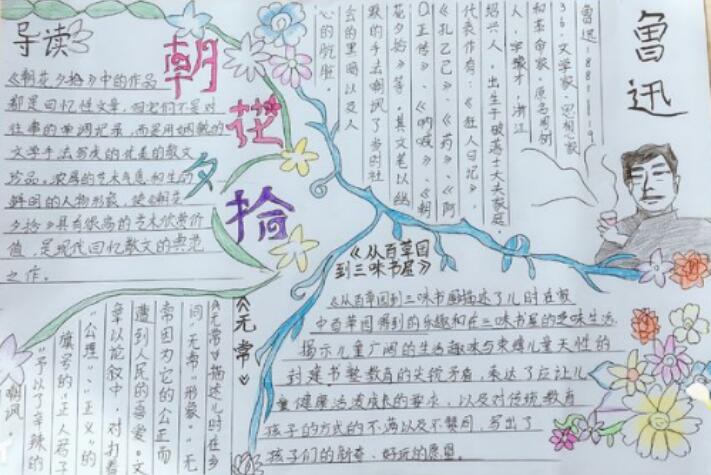 导读
《朝花夕拾》中的作品
都是回忆性文章，但它们不是对
往事的单调记录，而是用娴熟的
文学手法写成的优美的散文
珍品，浓厚的艺术气息和生动
鲜明的人物形象，使《朝花
夕拾》具有很高的艺术欣赏价
值，是现代回忆散文的典范
之作。
朝花夕拾
鲁迅
鲁迅1881-19
36，文学家、思想家
和革命家，原名周树
人，字豫才，浙江
绍兴人，出生于破落士大夫家庭，
代表作有：《狂人日记》、
《孔乙己》、《药》、《阿
Q正传》、《呐喊》、《朝
花夕拾》等，其文笔以幽
默的手法嘲讽了当时社
会的黑暗以及人
心的肮脏。
《从百草园
到三味书屋》
《从百草园到三味书屋》描述了儿时在家
中百草园得到的乐趣和在三味书屋的乏味生活，
揭示儿童广阔的生活趣味与束缚儿童天性的
封建书塾教育的尖锐矛盾，表达了应让儿
童健康活泼成长的要求，以及对传统教育
孩子们的方式的不满以及不赞同，写出了
孩子们的新奇、好玩的愿望。
《无常》
《无常》描述儿时在乡
间"无常"形象。"无
常因为它的公正而
遭到人民的喜爱。文
章以叙中，对打着
"公理"、"正义"的
旗号的"正人君子
"予以了辛辣的
嘲讽